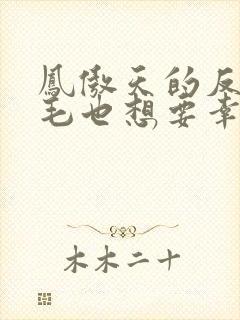 鳳傲天的反
毛也想要幸
木木二十